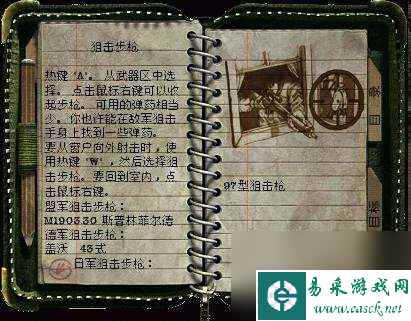 狙击步枪
热键 'A'。 从武器区中选
择。 点击鼠标右键可以收
起步枪。 可用的弹药相当
少。你也许能在敌军狙击
手身上找到一些弹药。
要从窗户向外射击时，使
用热键 'W'，然后选择狙
击步枪。要回到室内，点
击鼠标右键。
盟军狙击步枪：
M1903.30 斯普林菲尔德
德军狙击步枪：
盖沃 43式
日军狙击步枪：
97型狙击枪
目录
目标
易采游戏网
www.easck.com